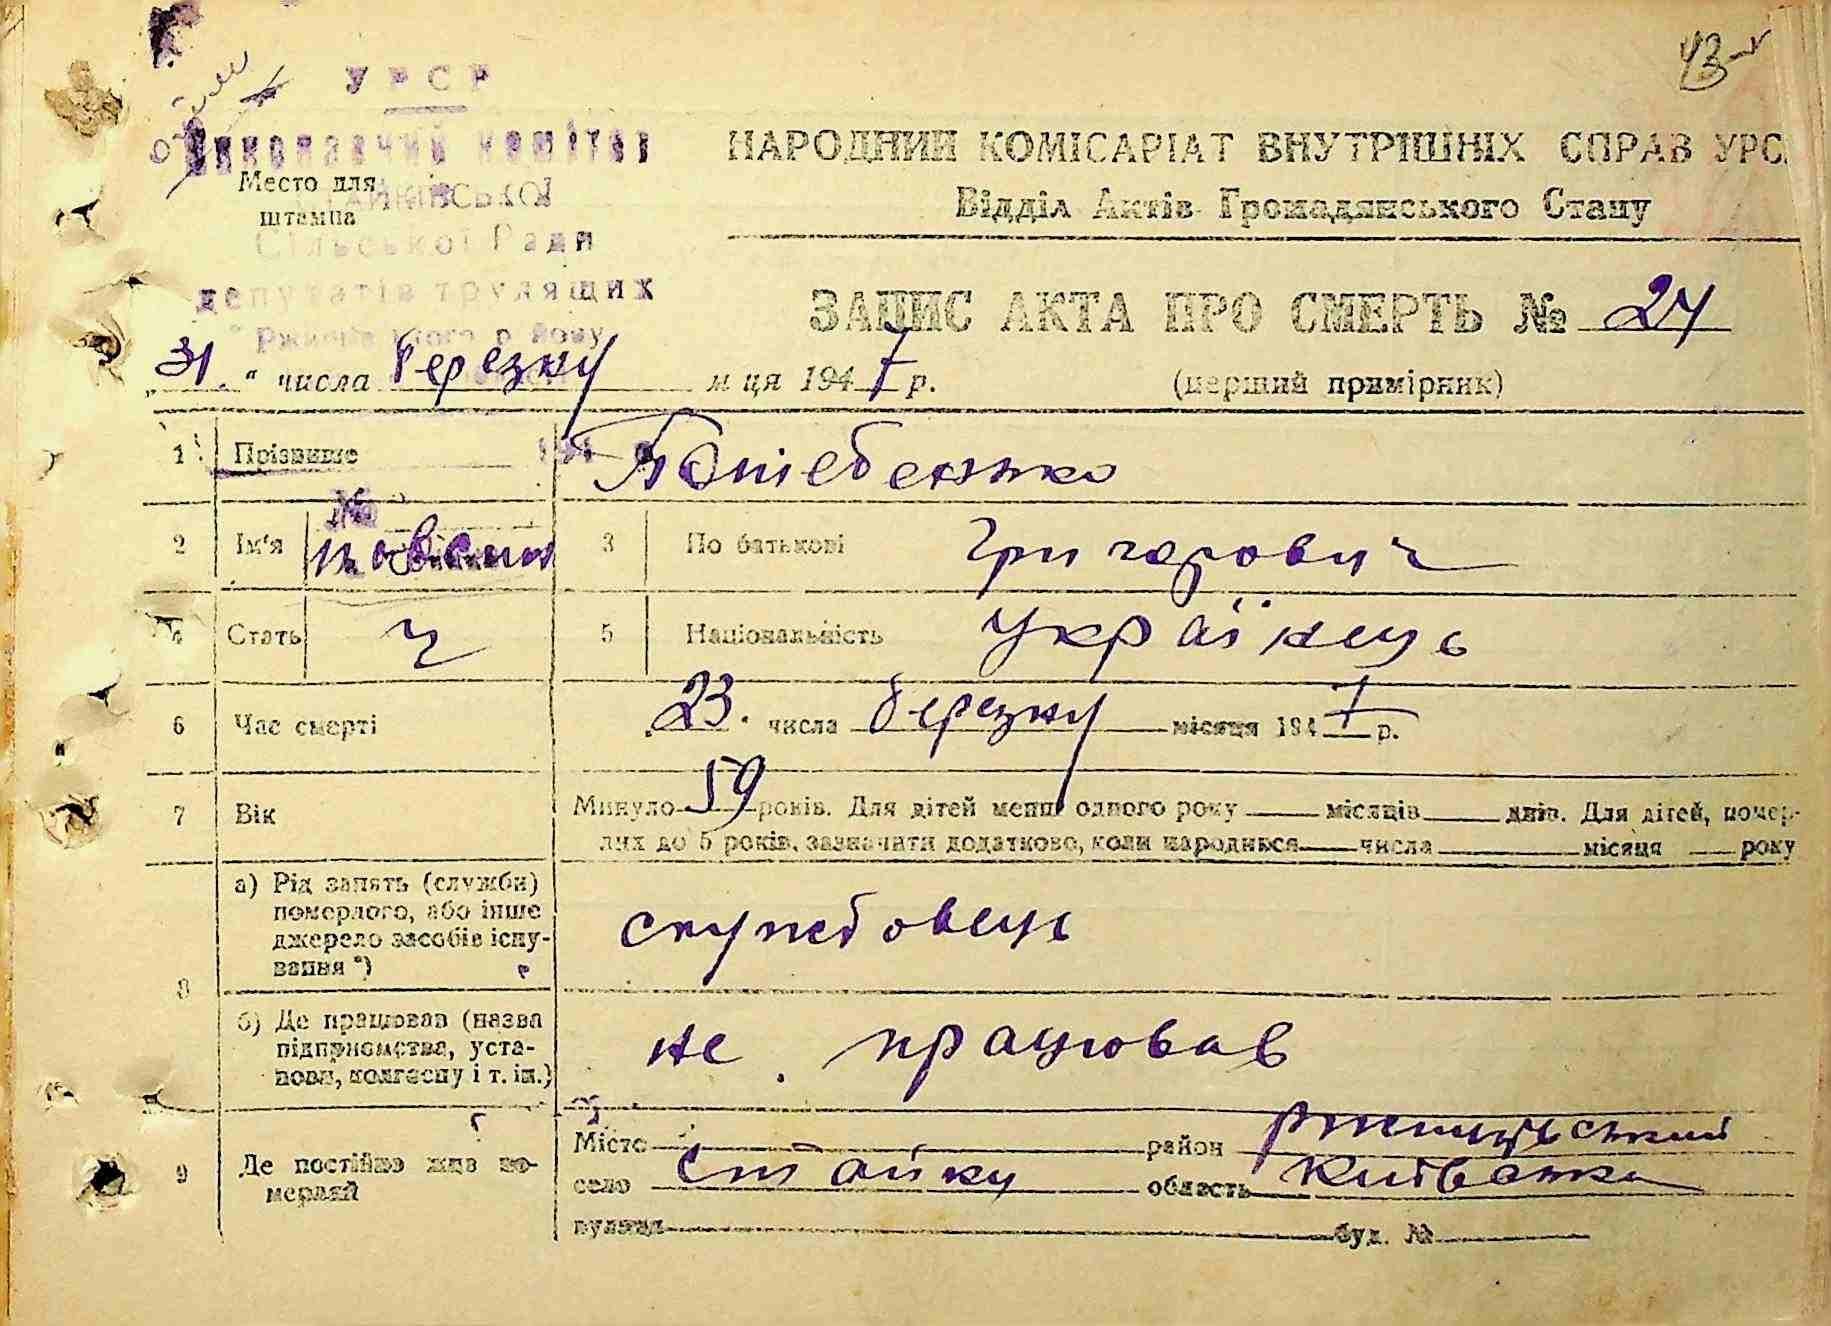 43
УРСР
Виконавчий комітет
Место для
штампа
СТАЙКІВСЬКОЇ
Сільської Ради
депутатів трудящих
Ржищівського району
НАРОДНИЙ КОМІСАРІАТ ВНУТРІШНІХ СПРАВ УРС
Відділ Актів Громадянського Стану
ЗАПИС АКТА ПРО СМЕРТЬ № 24
„31." числа березня м ця 1947 р. (перший примірник)
1 Прізвище
2 Ім'я 3 По батькові Григорович
4 Стать ч 5 Національність Українець
6 Час смерті 23. числа березня місяця 1947 р.
7 Вік Минуло 59 років. Для дітей менш одного року місяців днів. Для дітей, помер-
лих до 5 років, зазначити додатково, коли народився числа місяця року
8 а) Рід занять (служби)
померлого, або інше
джерело засобів існу-
вання *)
службовець
б) Де працював (назва
підприємства, уста-
нови, колгоспу і т. ін.)
не працював
9 Де постійно жив по-
мерлий
Місто район Ржищівський
село Стайки область Київська
вулиця буд. №